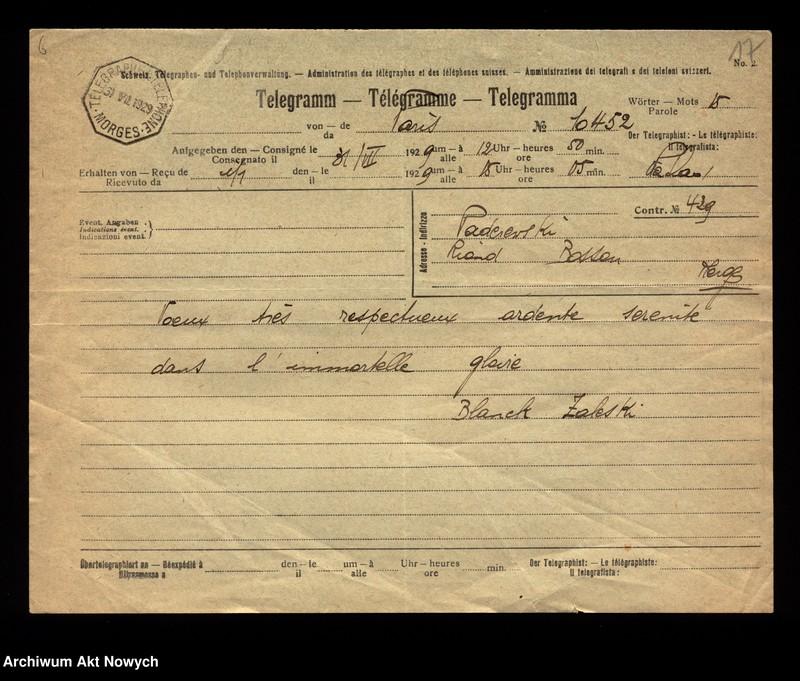 6
17
Schweiz. Telegraphen- und Telephonverwaltung. — Administration des télégraphes et des téléphones suisses. — Amministrazione dei telegrafi e dei telefoni svizzeri.
No. 2
TÉLÉGRAPHE TÉLÉPHONE
31 VII 1929
MORGES
Telegramm — Télégramme — Telegramma
Wörter — Mots 15
Parole
von — de Paris № 16452
da
Der Telegraphist: - Le télégraphiste:
Il telegrafista:
Aufgegeben den — Consigné le 31/VII 1929 um — à 12 Uhr — heures 50 min.
Consegnato il alle ore
Erhalten von — Reçu de den — le 1929 um — à 15 Uhr — heures 05 min.
Ricevuto da il alle ore
Event. Angaben
Indications évent.
Indicazioni event.
Adresse - Indirizzo
Contr. № 429
Paderewski
Riond Bosson
Morges
Voeux très respectueux ardente serenité
dans l'immortelle gloire
Blanck Zaleski
Übertelegraphiert an — Réexpédié à den — le um — à Uhr — heures min. Der Telegraphist: — Le télégraphiste:
il alle ore Il telegrafista:
Archiwum Akt Nowych